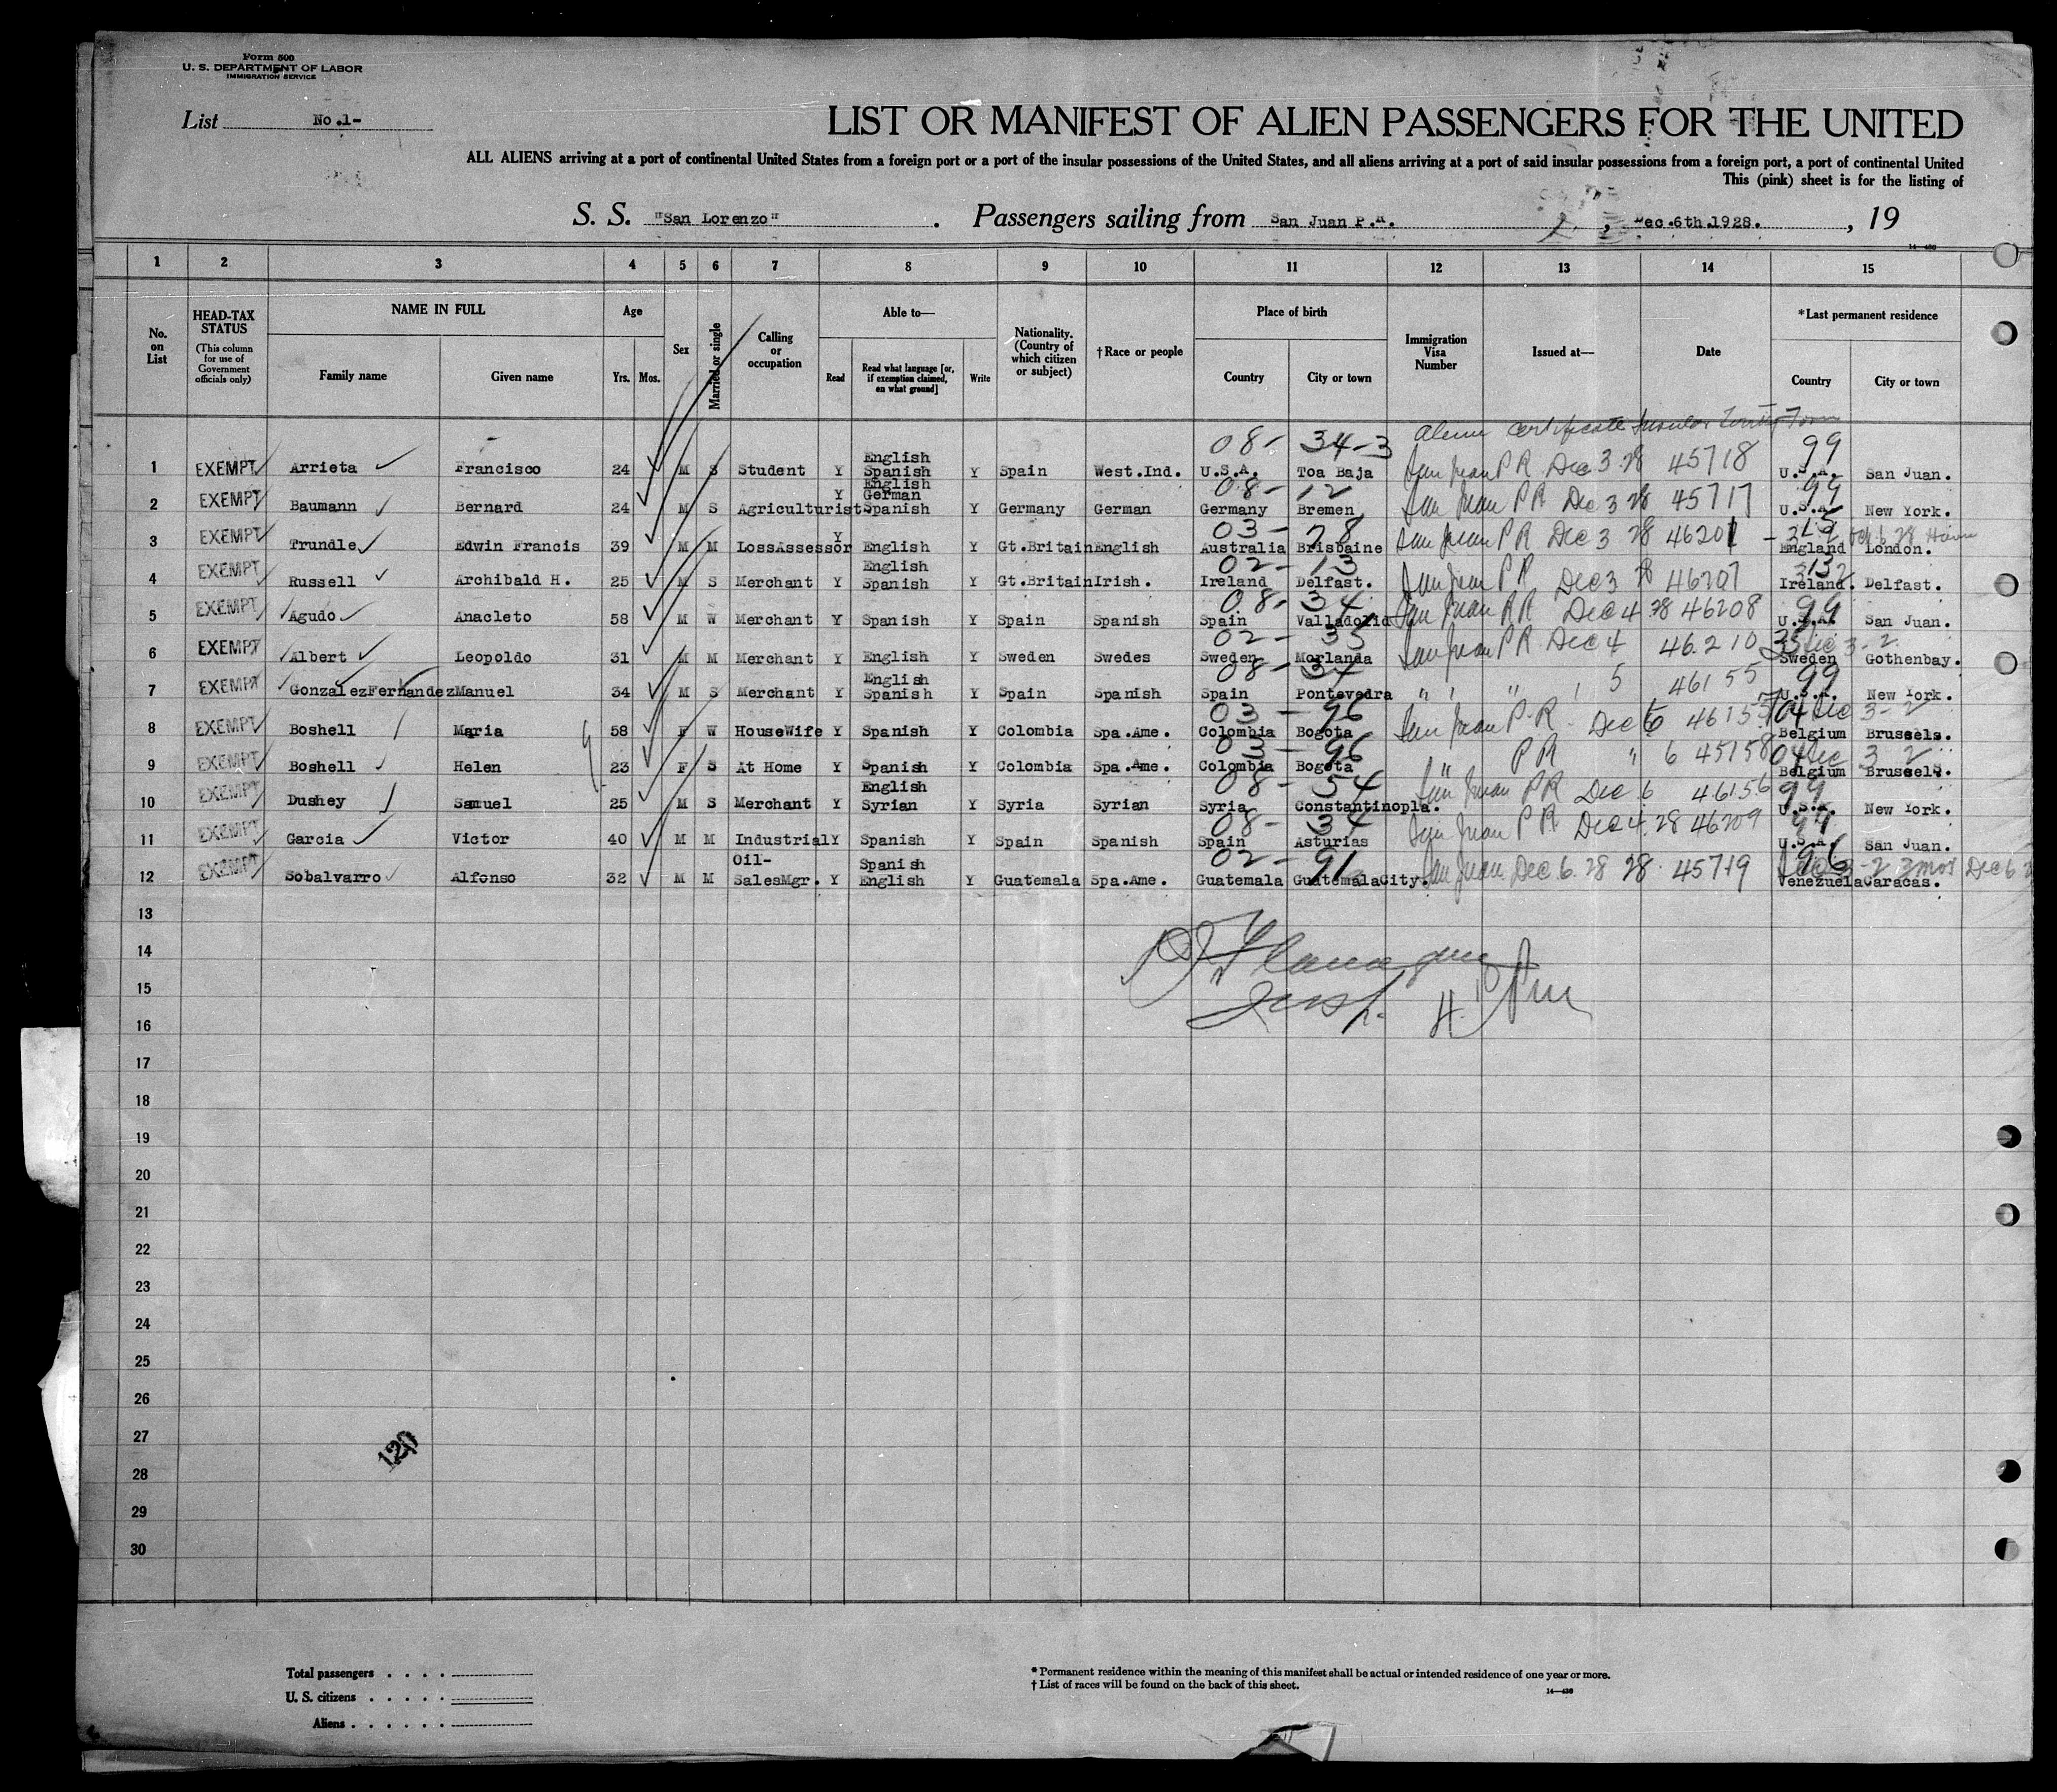 Form 500
U. S. DEPARTMENT OF LABOR
IMMIGRATION SERVICE
List No.1-
LIST OR MANIFEST OF ALIEN PASSENGERS FOR THE UNITED
ALL ALIENS arriving at a port of continental United States from a foreign port or a port of the insular possessions of the United States, and all aliens arriving at a port of said insular possessions from a foreign port, a port of continental United
This (pink) sheet is for the listing of
S. S. "San Lorenzo" . Passengers sailing from San Juan P.R. , Dec.6th.1928. , 19
14—430
1 2 3 4 5 6 7 8 9 10 11 12 13 14 15
No. on List
HEAD-TAX STATUS (This column for use of Government officials only)
NAME IN FULL Family name Given name
Age Yrs. Mos.
Sex
Married or single
Calling or occupation
Able to— Read Read what language [or, if exemption claimed, on what ground] Write
Nationality. (Country of which citizen or subject)
†Race or people
Place of birth Country City or town
Immigration Visa Number
Issued at—
Date
*Last permanent residence Country City or town
Alien Certificate Insular
1 EXEMPT Arrieta Francisco 24 M S Student Y English Spanish Y Spain West.Ind. 08- 34-3 U.S.A. Toa Baja San Juan P R Dec 3 28 45718 99 U.S.A. San Juan.
2 EXEMPT Baumann Bernard 24 M S Agriculturist Y English German Spanish Y Germany German 08- 12 Germany Bremen San Juan P R Dec 3 28 45717 99 U.S.A. New York.
3 EXEMPT Trundle Edwin Francis 39 M M LossAssessor Y English Y Gt.Britain English 03- 78 Australia Brisbaine San Juan P R Dec 3 28 46201 England London.
4 EXEMPT Russell Archibald H. 25 M S Merchant Y English Spanish Y Gt.Britain Irish. 02- 13 Ireland Delfast. San Juan P R Dec 3 28 46207 Ireland. Delfast.
5 EXEMPT Agudo Anacleto 58 M W Merchant Y Spanish Y Spain Spanish 08- 34 Spain Valladolid San Juan P R Dec 4 28 46208 99 U.S.A. San Juan.
6 EXEMPT Albert Leopoldo 31 M M Merchant Y English Y Sweden Swedes 02- 35 Sweden Morlanda San Juan P R Dec 4 46210 Sweden Gothenbay.
7 EXEMPT GonzalezFernandez Manuel 34 M S Merchant Y English Spanish Y Spain Spanish 08- 34 Spain Pontevedra " " " 5 46155 99 U.S.A. New York.
8 EXEMPT Boshell Maria 58 F W HouseWife Y Spanish Y Colombia Spa.Ame. 03- 96 Colombia Bogota San Juan P.R. Dec 6 46157 04 Dec 3-2 Belgium Brussels.
9 EXEMPT Boshell Helen 23 F S At Home Y Spanish Y Colombia Spa.Ame. 03- 96 Colombia Bogota " P R " 6 45158 04 Dec 3 2 Belgium Brussels.
10 EXEMPT Dushey Samuel 25 M S Merchant Y English Syrian Y Syria Syrian 08- 54 Syria Constantinopla. San Juan P R Dec 6 46156 99 U.S.A. New York.
11 EXEMPT Garcia Victor 40 M M Industrial Y Spanish Y Spain Spanish 08- 34 Spain Asturias San Juan P R Dec 4 28 46209 99 U.S.A. San Juan.
12 EXEMPT Sobalvarro Alfonso 32 M M Oil-SalesMgr. Y Spanish English Y Guatemala Spa.Ame. 02- 96 Guatemala GuatemalaCity. San Juan Dec 6 28 28 45719 96 3 mos Dec 6 Venezuela Caracas.
13
14
15
16
17
18
19
20
21
22
23
24
25
26
27
28
29
30
120
Total passengers
U. S. citizens
Aliens
* Permanent residence within the meaning of this manifest shall be actual or intended residence of one year or more.
† List of races will be found on the back of this sheet.
14—430